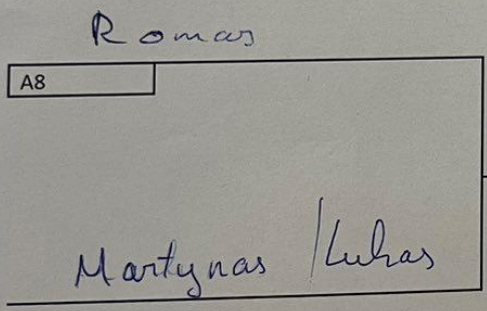 Romas
A8
Martynas /Lukas